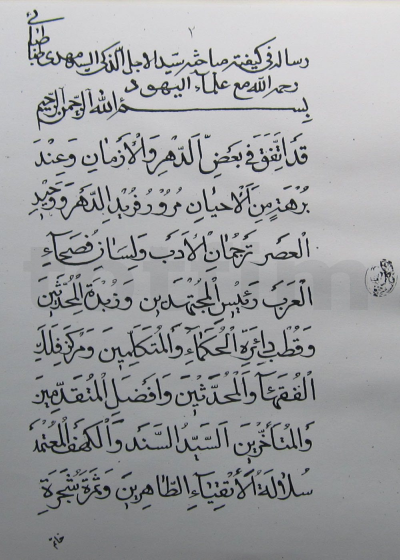 ١
رسالة في كيفية مباحثه سيد الاجل السيد مهدي طباطبائي
رحمه الله مع علماء اليهود
بسم الله الرحمن الرحيم
قد اتفق في بعض الدهر والأزمان وعند
برهة من الاحيان مرور فريد الدهر ووحيد
العصر ترجمان الأدب ولسان فصحاء
العرب رئيس المجتهدين وزبدة المحدثين
وقطب دائرة الحكماء والمتكلمين ومركز فلك
الفقهاء والمحدثين وافضل المتقدمين
والمتأخرين السيد السند والكهف المعتمد
سلالة الأتقياء الطاهرين وثمرة شجرة